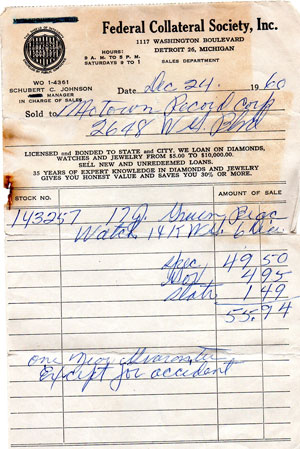 Federal Collateral Society, Inc.
1117 WASHINGTON BOULEVARD
DETROIT 26, MICHIGAN
HOURS:
9 A. M. TO 5 P. M.
SATURDAYS 9 TO 1
SALES DEPARTMENT
WO 1-4361
SCHUBERT C. JOHNSON
MANAGER
IN CHARGE OF SALES
Date Dec 24 1960
Sold to Motown Record Corp
2648 W G. Blvd
LICENSED and BONDED TO STATE and CITY. WE LOAN ON DIAMONDS,
WATCHES AND JEWELRY FROM $5.00 TO $10,000.00
SELL NEW AND UNREDEEMED LOANS.
35 YEARS OF EXPERT KNOWLEDGE IN DIAMONDS AND JEWELRY
GIVES YOU HONEST VALUE AND SAVES YOU 30% OR MORE.
STOCK NO. AMOUNT OF SALE
143257 17 J. Gruen
Watch 14 K W.
Spec 49 50
4 95
State 1 49
55.94
one year Guarantee
Except for accident